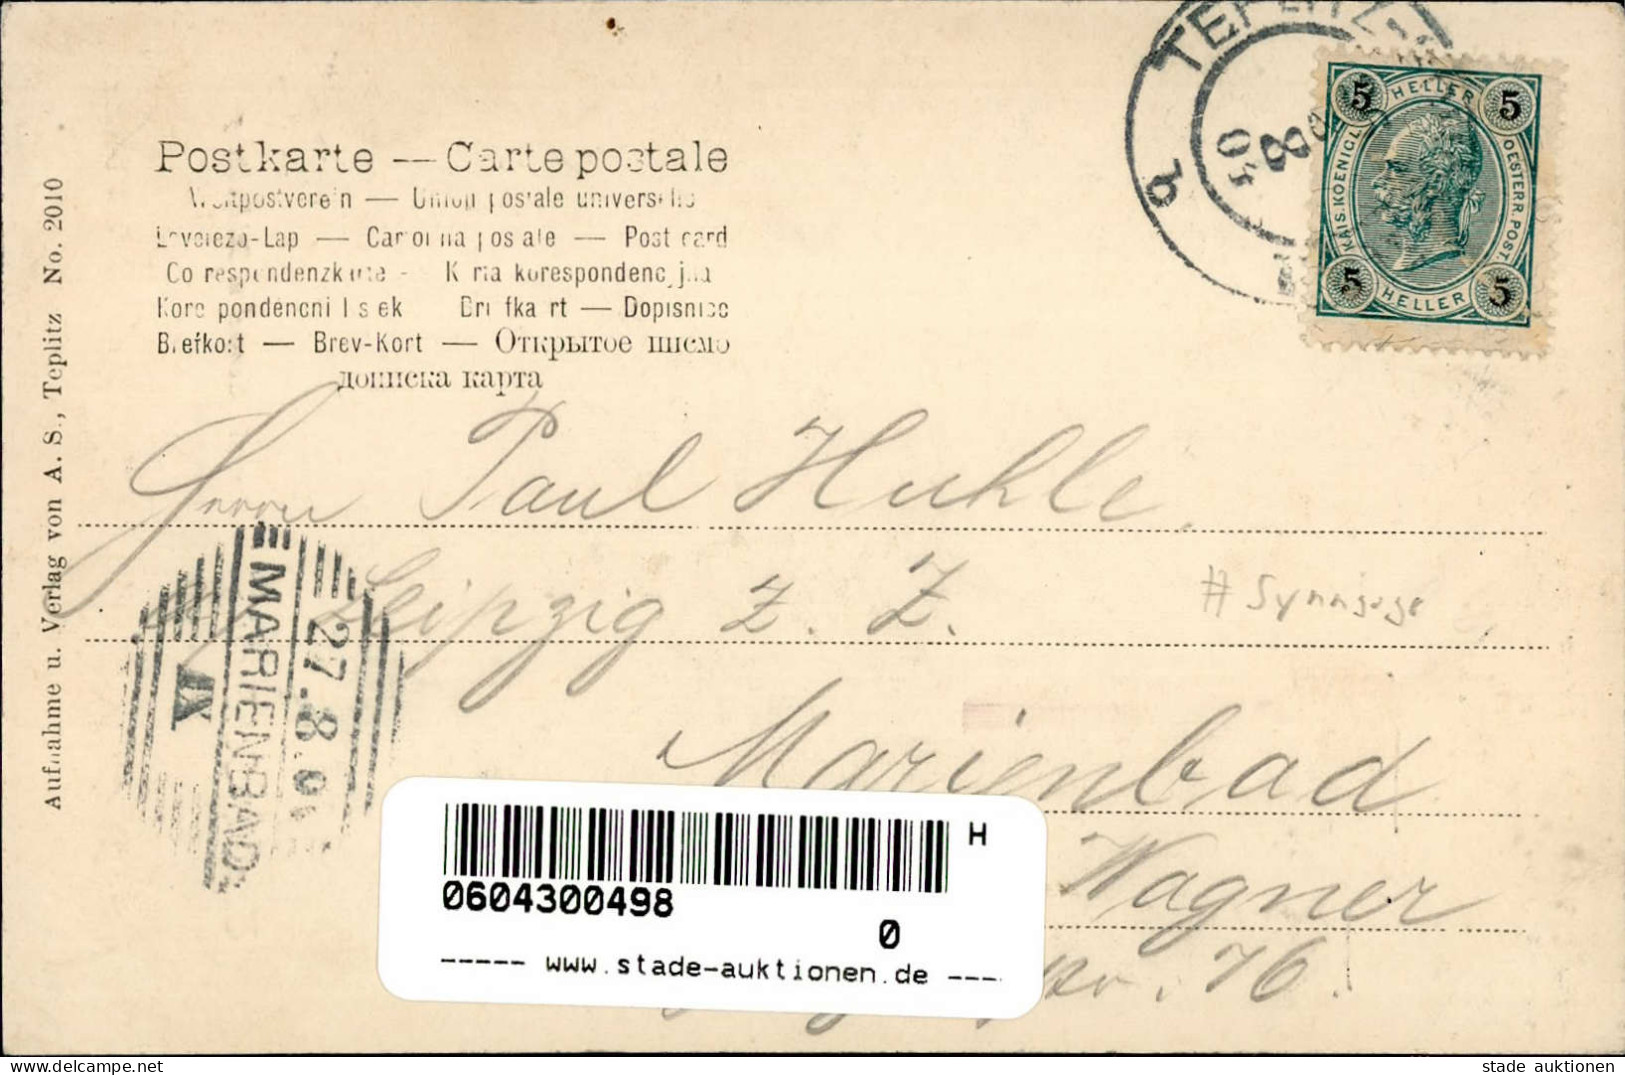 Postkarte — Carte postale
Weltpostverein — Union postale universelle
Levelező-Lap — Cartolina postale — Post card
Correspondenzkarte - Karta korespondencyjna
Korespondencni listek Briefkart — Dopisnice
Brefkort — Brev-Kort — Открытое письмо
дописна карта
Aufnahme u. Verlag von A. S., Teplitz No. 2010
TEPLITZ-
b
8
04
5 HELLER 5
KAIS. KOENIGL.
OESTERR. POST
5 HELLER 5
Herrn Paul Huhle,
Leipzig z. Z.
# Synagoge
Marienbad
Wagner
76.
MARIENBAD
27.8.04
IX
H
0604300498
0
----- www.stade-auktionen.de ----
stade auktionen